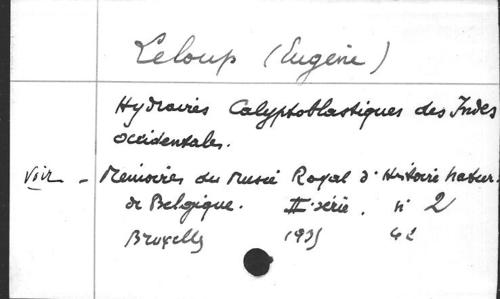 Leloup (Eugène)
Hydraires Calyptoblastiques des Indes
occidentales.
Voir - Mémoires du Musée Royal d'Histoire natur.
de Belgique. II série. n° 2
Bruxelles 1935